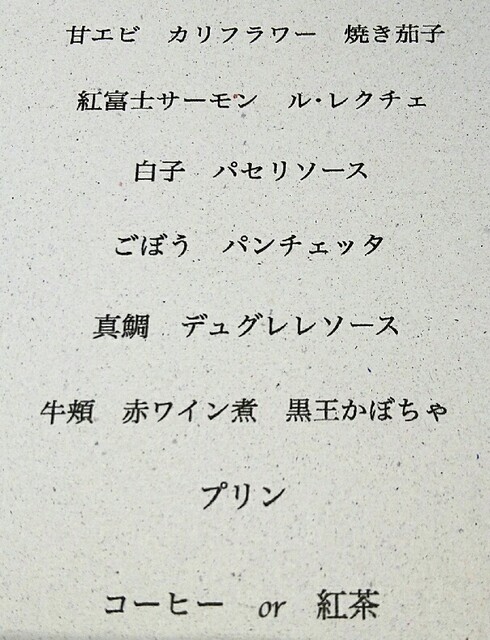 甘エビ　カリフラワー　焼き茄子
紅富士サーモン　ル・レクチェ
白子　パセリソース
ごぼう　パンチェッタ
真鯛　デュグレレソース
牛頬　赤ワイン煮　黒王かぼちゃ
プリン
コーヒー　or　紅茶